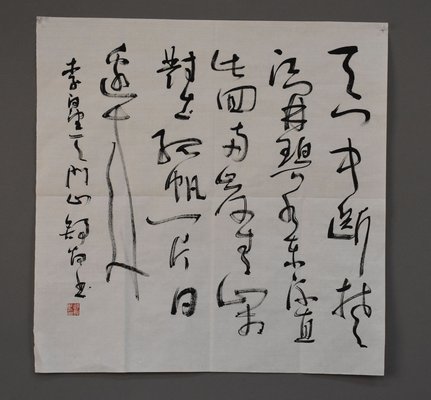 天门中断楚
江开碧水东流直
此回两岸青山相
對出孤帆一片日
边来
李白望天门山 书